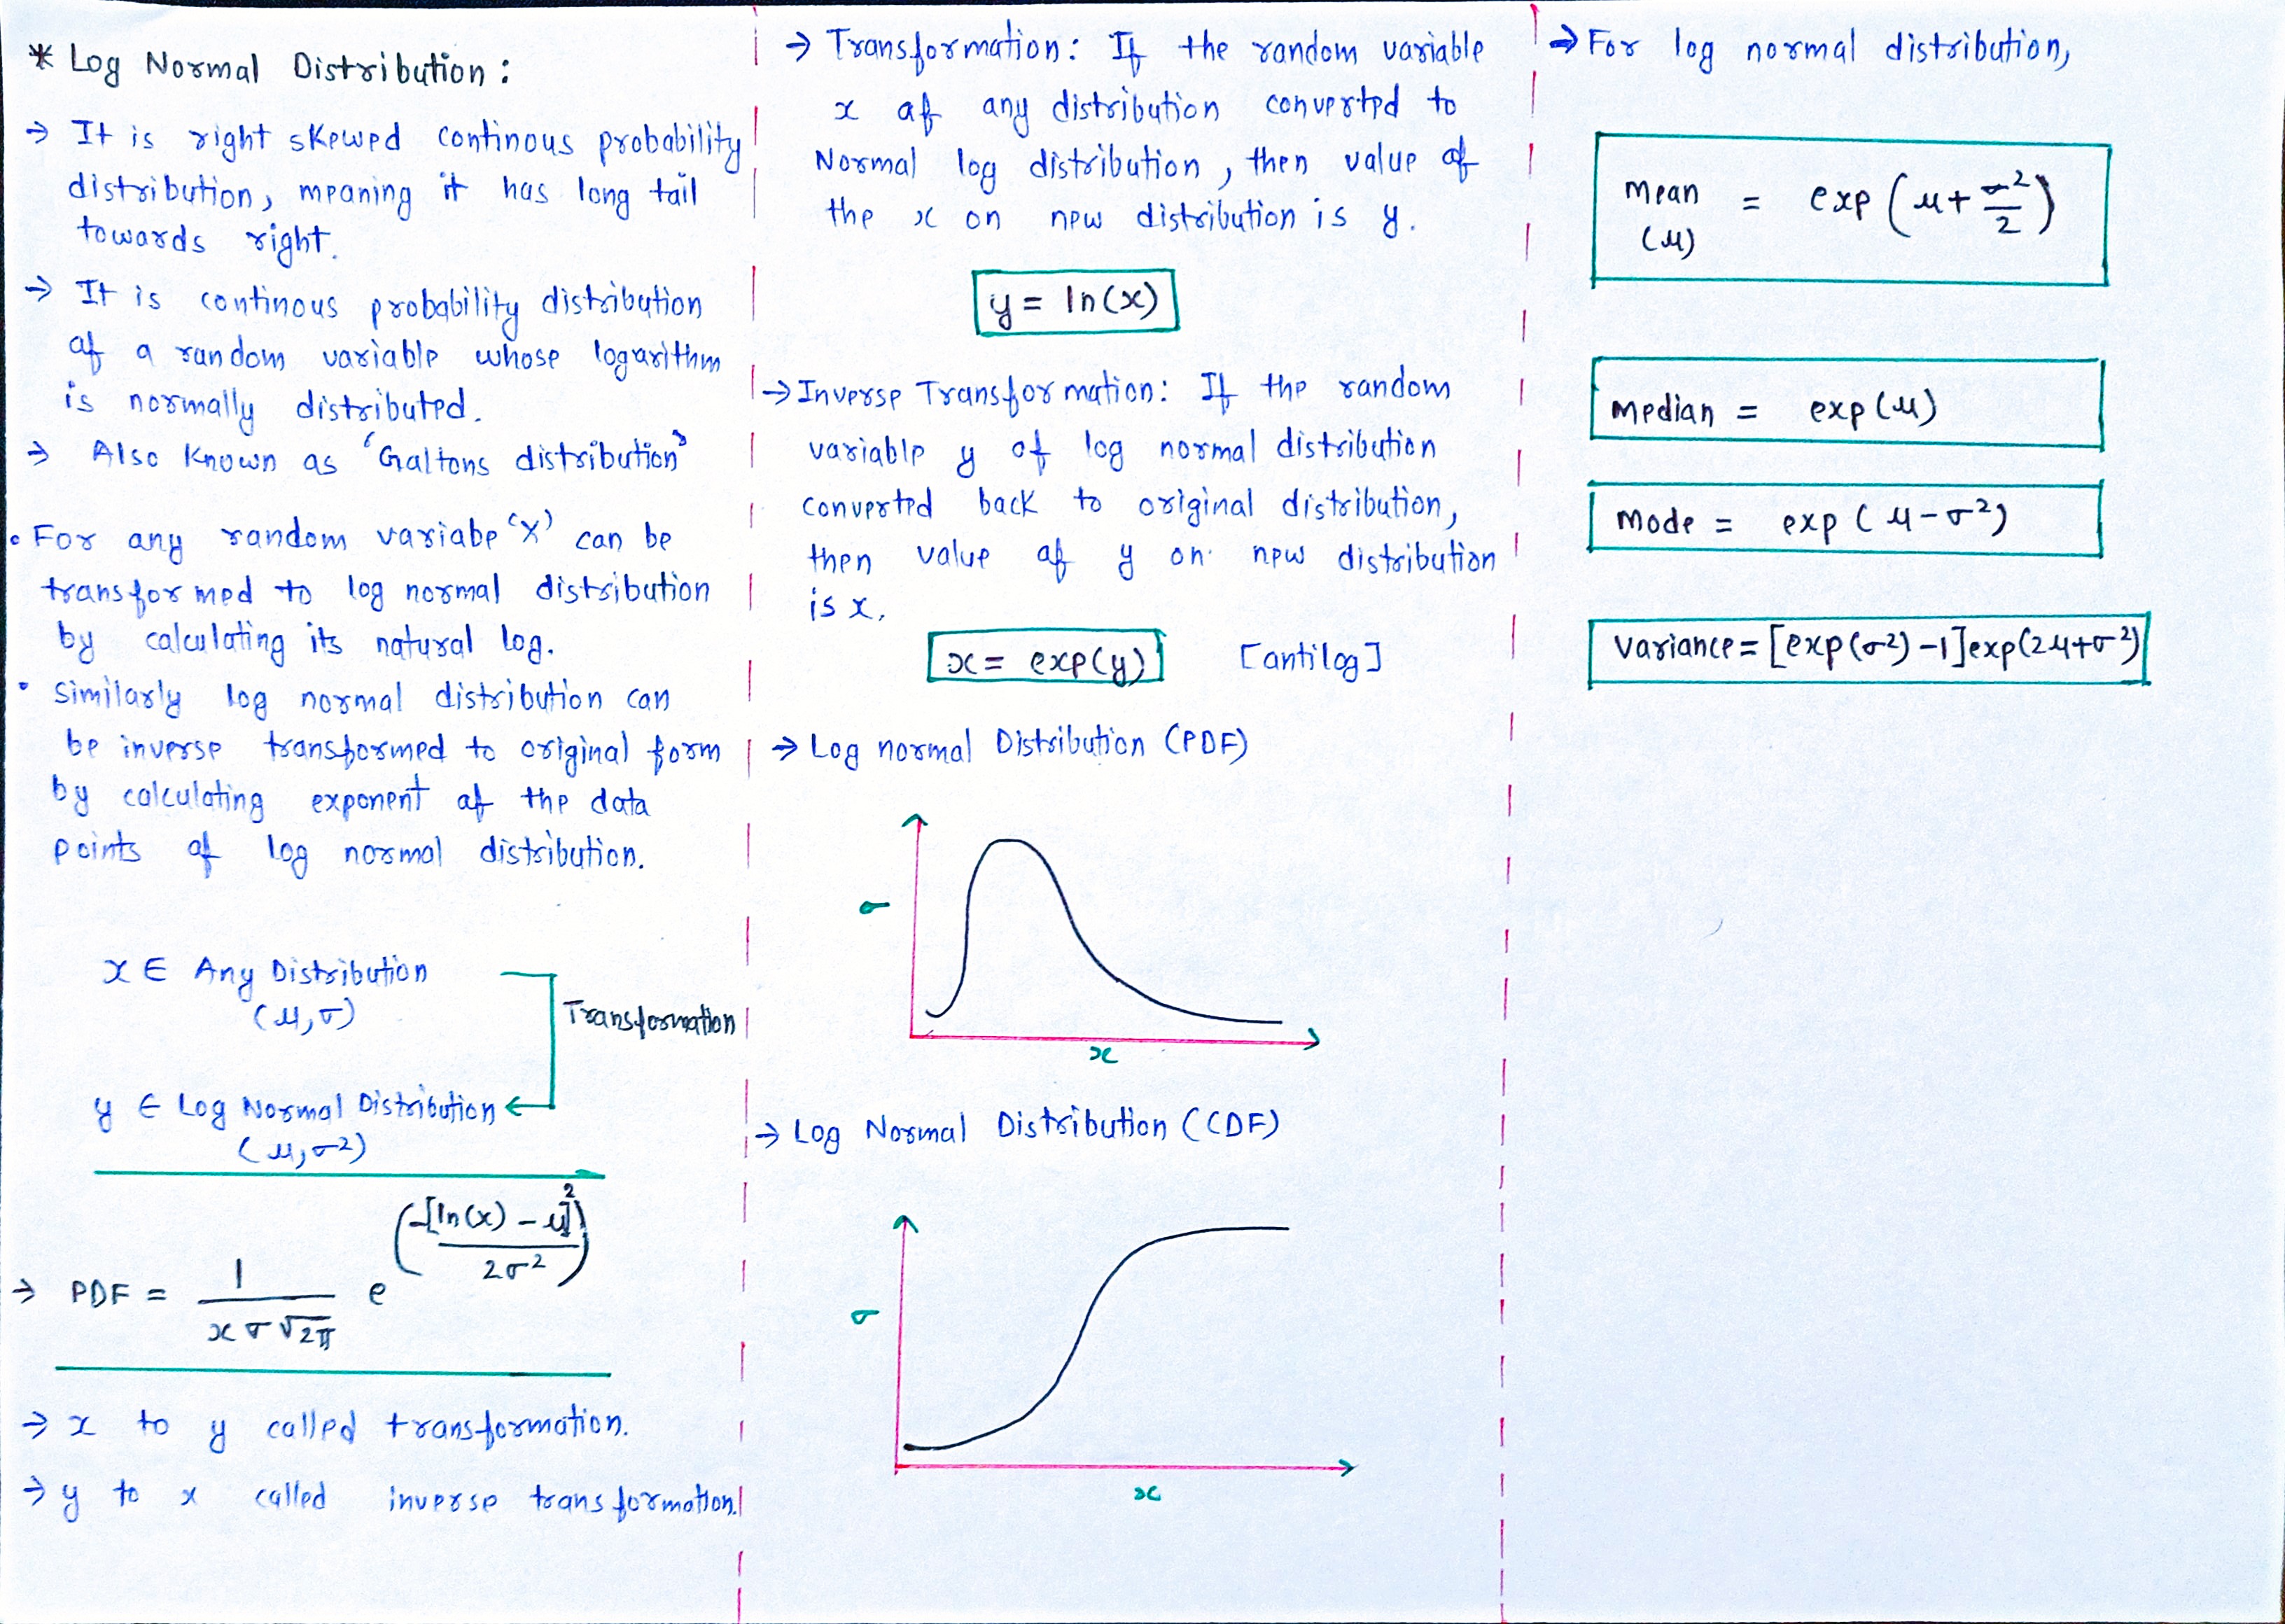 * Log Normal Distribution :
→ It is right skewed continous probability
distribution, meaning it has long tail
towards right.
→ It is continous probability distribution
of a random variable whose logarithm
is normally distributed.
→ Also known as 'Galtons distribution'
• For any random variabe 'X' can be
transformed to log normal distribution
by calculating its natural log.
• Similarly log normal distribution can
be inverse transformed to original form
by calculating exponent of the data
points of log normal distribution.
x ∈ Any Distribution
(μ, σ)
Transformation
y ∈ Log Normal Distribution
(μ, σ²)
→ PDF = 1 / (x σ √2π) e^(-[ln(x) - μ]² / 2σ²)
→ x to y called transformation.
→ y to x called inverse transformation.
→ Transformation: If the random variable
x of any distribution converted to
Normal log distribution, then value of
the x on new distribution is y.
y = ln(x)
→ Inverse Transformation: If the random
variable y of log normal distribution
converted back to original distribution,
then value of y on new distribution
is x.
x = exp(y) [antilog]
→ Log normal Distribution (PDF)
σ
x
→ Log Normal Distribution (CDF)
σ
x
→ For log normal distribution,
mean (μ) = exp(μ + σ²/2)
median = exp(μ)
mode = exp(μ-σ²)
variance = [exp(σ²)-1]exp(2μ+σ²)